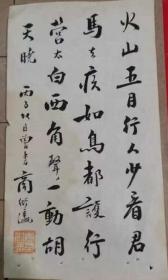 火山五月行人少看君
馬去疾如鳥都護行
營太白西角聲一動胡
天曉 丙子 商衍瀛